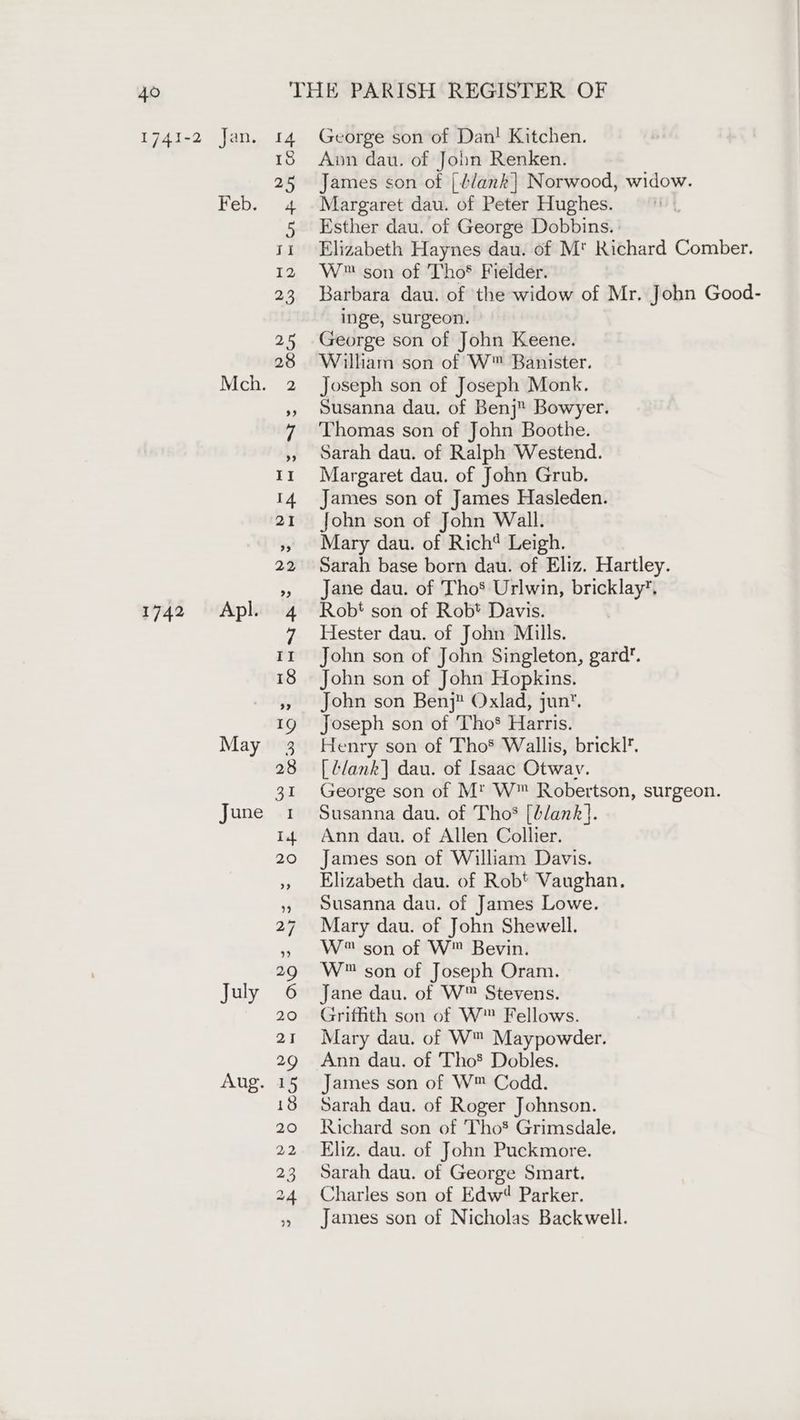 40 THE PARISH REGISTER OF
1741-2 Jan. 14 George son of Danˡ Kitchen.
18 Ann dau. of John Renken.
25 James son of [blank] Norwood, widow.
Feb. 4 Margaret dau. of Peter Hughes.
5 Esther dau. of George Dobbins.
11 Elizabeth Haynes dau. of Mʳ Richard Comber.
12 Wᵐ son of Thoˢ Fielder.
23 Barbara dau. of the widow of Mr. John Good-
inge, surgeon.
25 George son of John Keene.
28 William son of Wᵐ Banister.
Mch. 2 Joseph son of Joseph Monk.
„ Susanna dau. of Benjⁿ Bowyer.
7 Thomas son of John Boothe.
„ Sarah dau. of Ralph Westend.
11 Margaret dau. of John Grub.
14 James son of James Hasleden.
21 John son of John Wall.
„ Mary dau. of Richᵈ Leigh.
22 Sarah base born dau. of Eliz. Hartley.
„ Jane dau. of Thoˢ Urlwin, bricklayʳ.
1742 Apl. 4 Robᵗ son of Robᵗ Davis.
7 Hester dau. of John Mills.
11 John son of John Singleton, gardʳ.
18 John son of John Hopkins.
„ John son Benjⁿ Oxlad, junʳ.
19 Joseph son of Thoˢ Harris.
May 3 Henry son of Thoˢ Wallis, bricklʳ.
28 [blank] dau. of Isaac Otway.
31 George son of Mʳ Wᵐ Robertson, surgeon.
June 1 Susanna dau. of Thoˢ [blank].
14 Ann dau. of Allen Collier.
20 James son of William Davis.
„ Elizabeth dau. of Robᵗ Vaughan.
„ Susanna dau. of James Lowe.
27 Mary dau. of John Shewell.
„ Wᵐ son of Wᵐ Bevin.
29 Wᵐ son of Joseph Oram.
July 6 Jane dau. of Wᵐ Stevens.
20 Griffith son of Wᵐ Fellows.
21 Mary dau. of Wᵐ Maypowder.
29 Ann dau. of Thoˢ Dobles.
Aug. 15 James son of Wᵐ Codd.
18 Sarah dau. of Roger Johnson.
20 Richard son of Thoˢ Grimsdale.
22 Eliz. dau. of John Puckmore.
23 Sarah dau. of George Smart.
24 Charles son of Edwᵈ Parker.
„ James son of Nicholas Backwell.